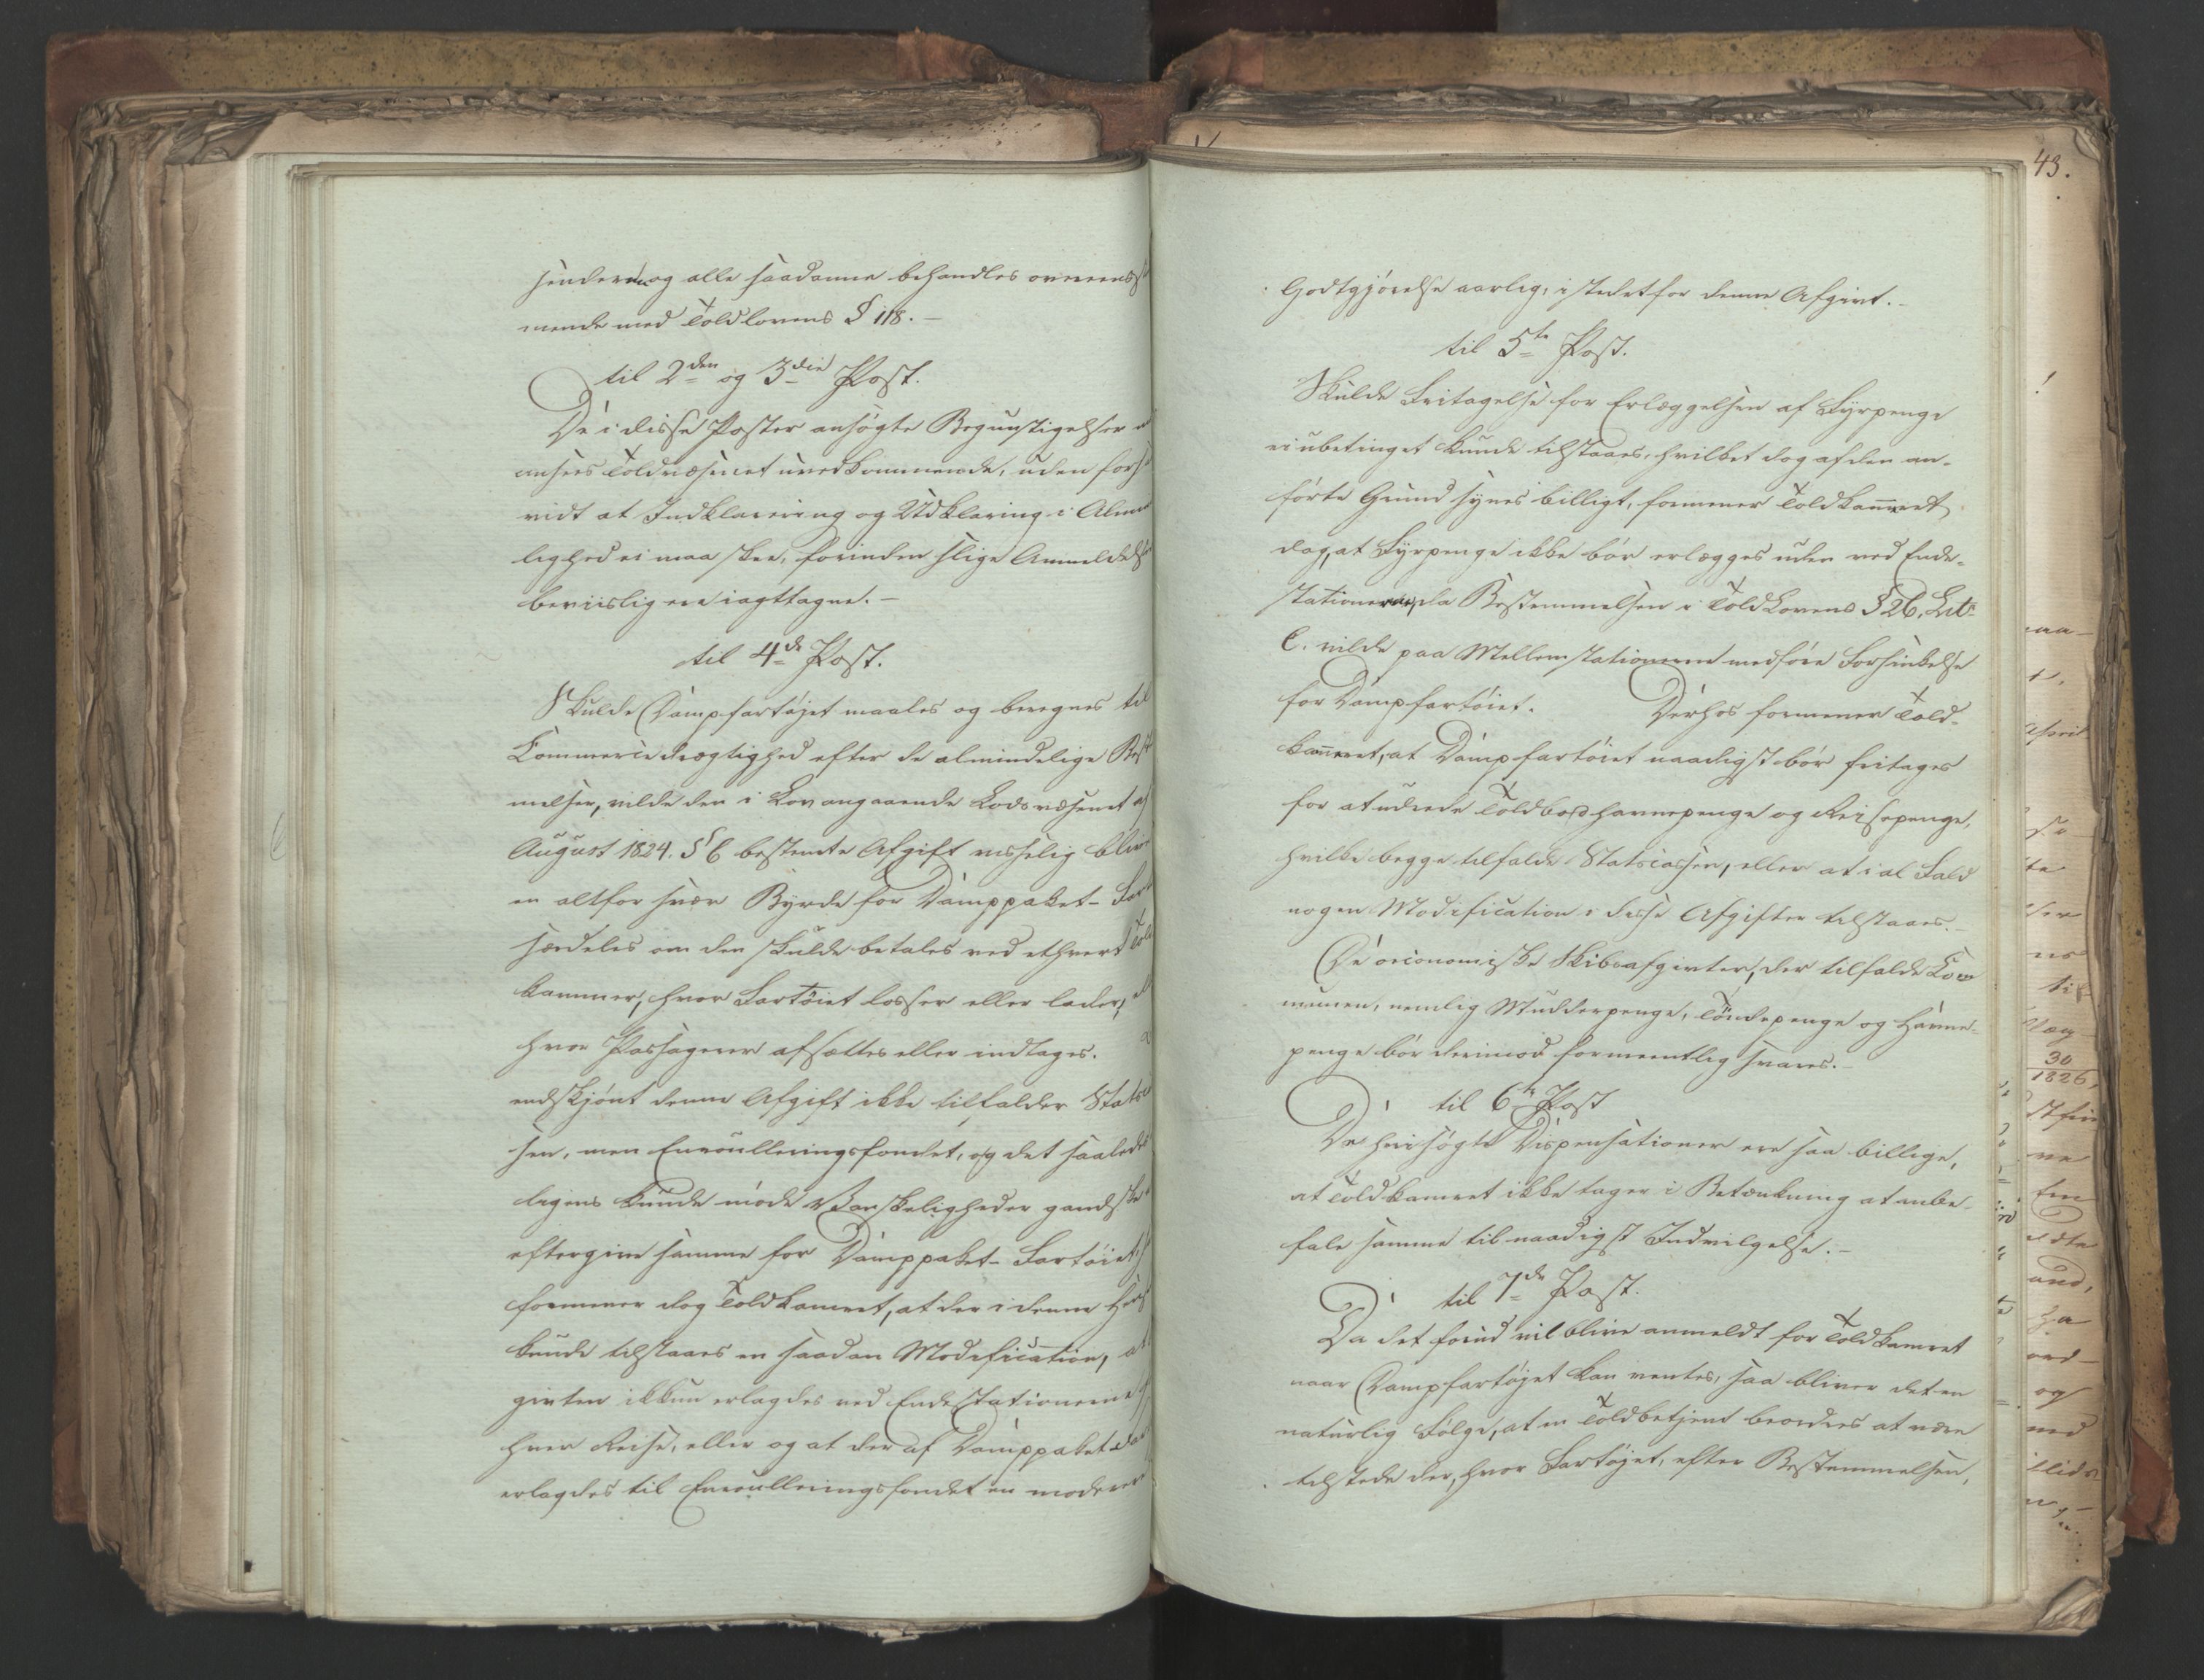 senderen og alle saadanne behandles overens
mende med Toldlovens § 118. –
til 2den og 3die Post.
De i disse Poster ansøgte Begunstigelser
ansees Toldvæsenet uvedkommende, uden for
vidt at Indklarering og Udklaring i Almin
lighed ei maa skee, forinden slige Anmeldelse
beviislig ere iagttagne. –
til 4de Post.
Skulde Dampfartøjet maales og beregnes til
Commercedrægtighed efter de almindelige Best
melser, vilde den i Lov angaaende Lodsvæsenet af
August 1824. § 6 bestemte Afgift visselig blive
en altfor svær Byrde for Damppaket-Far
særdeles om den skulde betales ved ethvert Told
kammer, hvor Fartöiet losser eller lader,
hvor Passagerer afsættes eller indtages.
endskjönt denne Afgift ikke tilfalder Stats
sen, men Enroulleringsfondet, og det saaledes
ligens kunde möde Vanskeligheder gandske
eftergive samme for Damppaket-Fartöiet,
formener dog Toldkameret, at der i denne Hens
kunde tilstaaes en saadan Modification, at
givten ikkun erlagdes ved Endestationerne
hver Reise, eller og at der af Damppaket
erlagdes til Enroulleringsfondet en moderer
43.
Godtgjörelse aarlig, istedetfor denne Afgivt. –
til 5te Post.
Skulde Fritagelse for Erlæggelsen af Fyrpenge
ei ubetinget kunde tilstaaes, hvilket dog af den an-
förte Grund synes billigt, formener Toldkam̅eret
dog, at Fyrpenge ikke bör erlægges uden ved Ende-
stationerne, da Bestemmelsen i Toldlovens § 26, Litr
C. vilde paa Mellemstationerne medføre Forsinkelse
for Dampfartöiet. Derhos formener Told-
kam̅eret, at Dampfartöiet naadigst bör fritages
for at udrede Toldbodhavnepenge og Reisepenge,
hvilke begge tilfalde Statscassen, eller at i al Fald
nogen Modification i disse Afgifter tilstaaes. –
De oeconomiske Skibsafgivter, der tilfalde Com
munen, nemlig Mudderpenge, Töndepenge og Havne-
penge bör derimod formeentlig svares. –
til 6te Post
De her søgte Dispensationer ere saa billige,
at Toldkameret ikke tager i Betænkning at anbe-
fale samme til naadigst Indvilgelse. –
til 7de Post.
Da det forud vil blive anmeldt for Toldkameret
naar Dampfartøjet kan ventes, saa bliver det en
naturlig Følge, at en Toldbetjent beordres at være
tilstede der, hvor Fartøjet, efter Bestemmelsen,